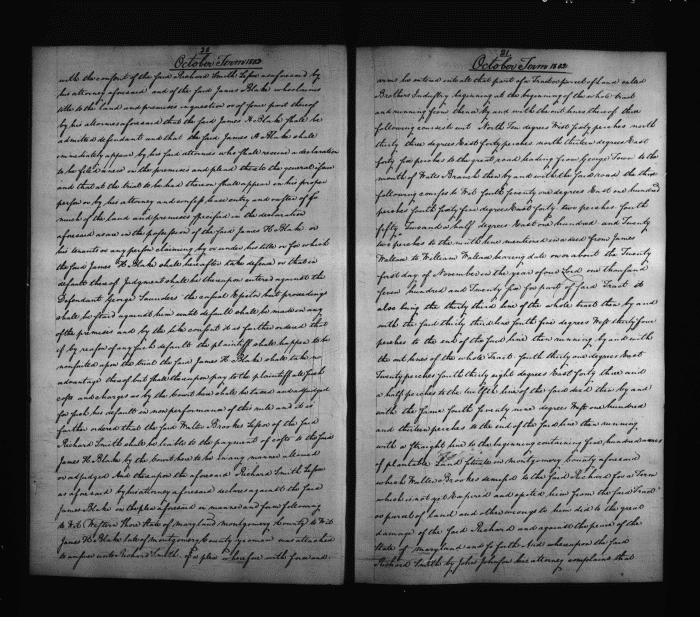 20
October Term 1802
with the consent of the said Richard Smith Lessee aforesaid by
his attorney aforesaid and of the said James Blake who claims
title to the land and premises in question or of some part thereof
by his attorney aforesaid that the said James H Blake shall be
admitted defendant and that the said James H Blake shall
immediately appear by his said attorney who shall receive a declaration
to be filed in the premises and plead thereto the general issue
and that at the trial to be had thereon shall appear in his proper
person or by his attorney and confess lease entry and ouster of so
much of the land and premises specified in the declaration
aforesaid as are in the possession of the said James H. Blake or
his tenants or any person claiming by or under his title or for which
the said James H. Blake shall hereafter take defence or that in
default thereof Judgment shall be thereupon entered against the
Defendant George Saunders the casual Ejector but proceedings
shall be stayed against him until default shall be made in any
of the premises and by the like consent it is further ordered that
if by reason of any such default the plaintiff shall happen to be
nonsuited upon the trial the said James H. Blake shall take no
advantage thereof but shall thereupon pay to the plaintiff all such
costs and charges as by the Court here shall be taxed and adjudged
for such his default in non performance of this rule and it is
further ordered that the said Walter Brookes Lessor of the said
Richard Smith shall be liable to the payment of costs to the said
James H. Blake by the Court here to be in any manner allowed
or adjudged And thereupon the aforesaid Richard Smith Lessee
as aforesaid by his attorney aforesaid declares against the said
James Blake on the plea aforesaid in manner and form following
to Wit Western Shore State of Maryland Montgomery County to Wit
James H. Blake late of Montgomery County yeoman was attached
to answer unto Richard Smith of a plea wherefore with force and
21
October Term 1802
arms he entered into all that part of a Tract or parcel of land called
Brothers Industry beginning at the beginning of the whole tract
and running from thence by and with the out lines thereof three
following courses to wit North Ten degrees West forty perches north
thirty three degrees East forty perches north thirteen degrees East
forty five perches to the great road leading from George Town to the
mouth of Watts Branch then by and with the said road the three
following courses to Wit South seventy one degrees East one hundred
perches South forty five degrees East forty two perches South
fifty two and a half degrees East one hundred and Twenty
two perches to the ninth line mentioned in a deed from James
Wallace to William Wallace bearing date on or about the Twenty
first day of November in the year of our Lord one thousand
seven hundred and Twenty for part of said Tract it
also being the thirty third line of the whole tract then by and
with the said thirty third line South five degrees West thirty four
perches to the end of the said line then running by and with
the out lines of the whole Tract South thirty one degrees East
Twenty perches South thirty eight degrees East forty three and
a half perches to the twelfth line of the said deed then by and
with the same South seventy nine degrees West one hundred
and thirteen perches to the end of the said line then running
with a straight line to the beginning containing five hundred acres
of plantable Land situate in Montgomery County aforesaid
which Walter Brookes demised to the said Richard for a Term
which is not yet expired and ejected him from the said Tract
or parcel of land and other wrongs to him did to the great
damage of the said Richard and against the peace of the
State of Maryland and so forth And whereupon the said
Richard Smith by John Johnson his attorney complains that